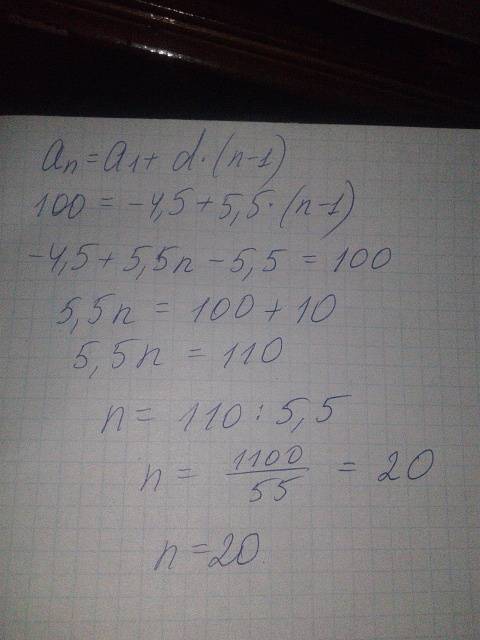 an = a1 + d · (n-1)
100 = -4,5 + 5,5 · (n-1)
-4,5 + 5,5n - 5,5 = 100
5,5n = 100 + 10
5,5n = 110
n = 110 : 5,5
n = 1100/55 = 20
n = 20